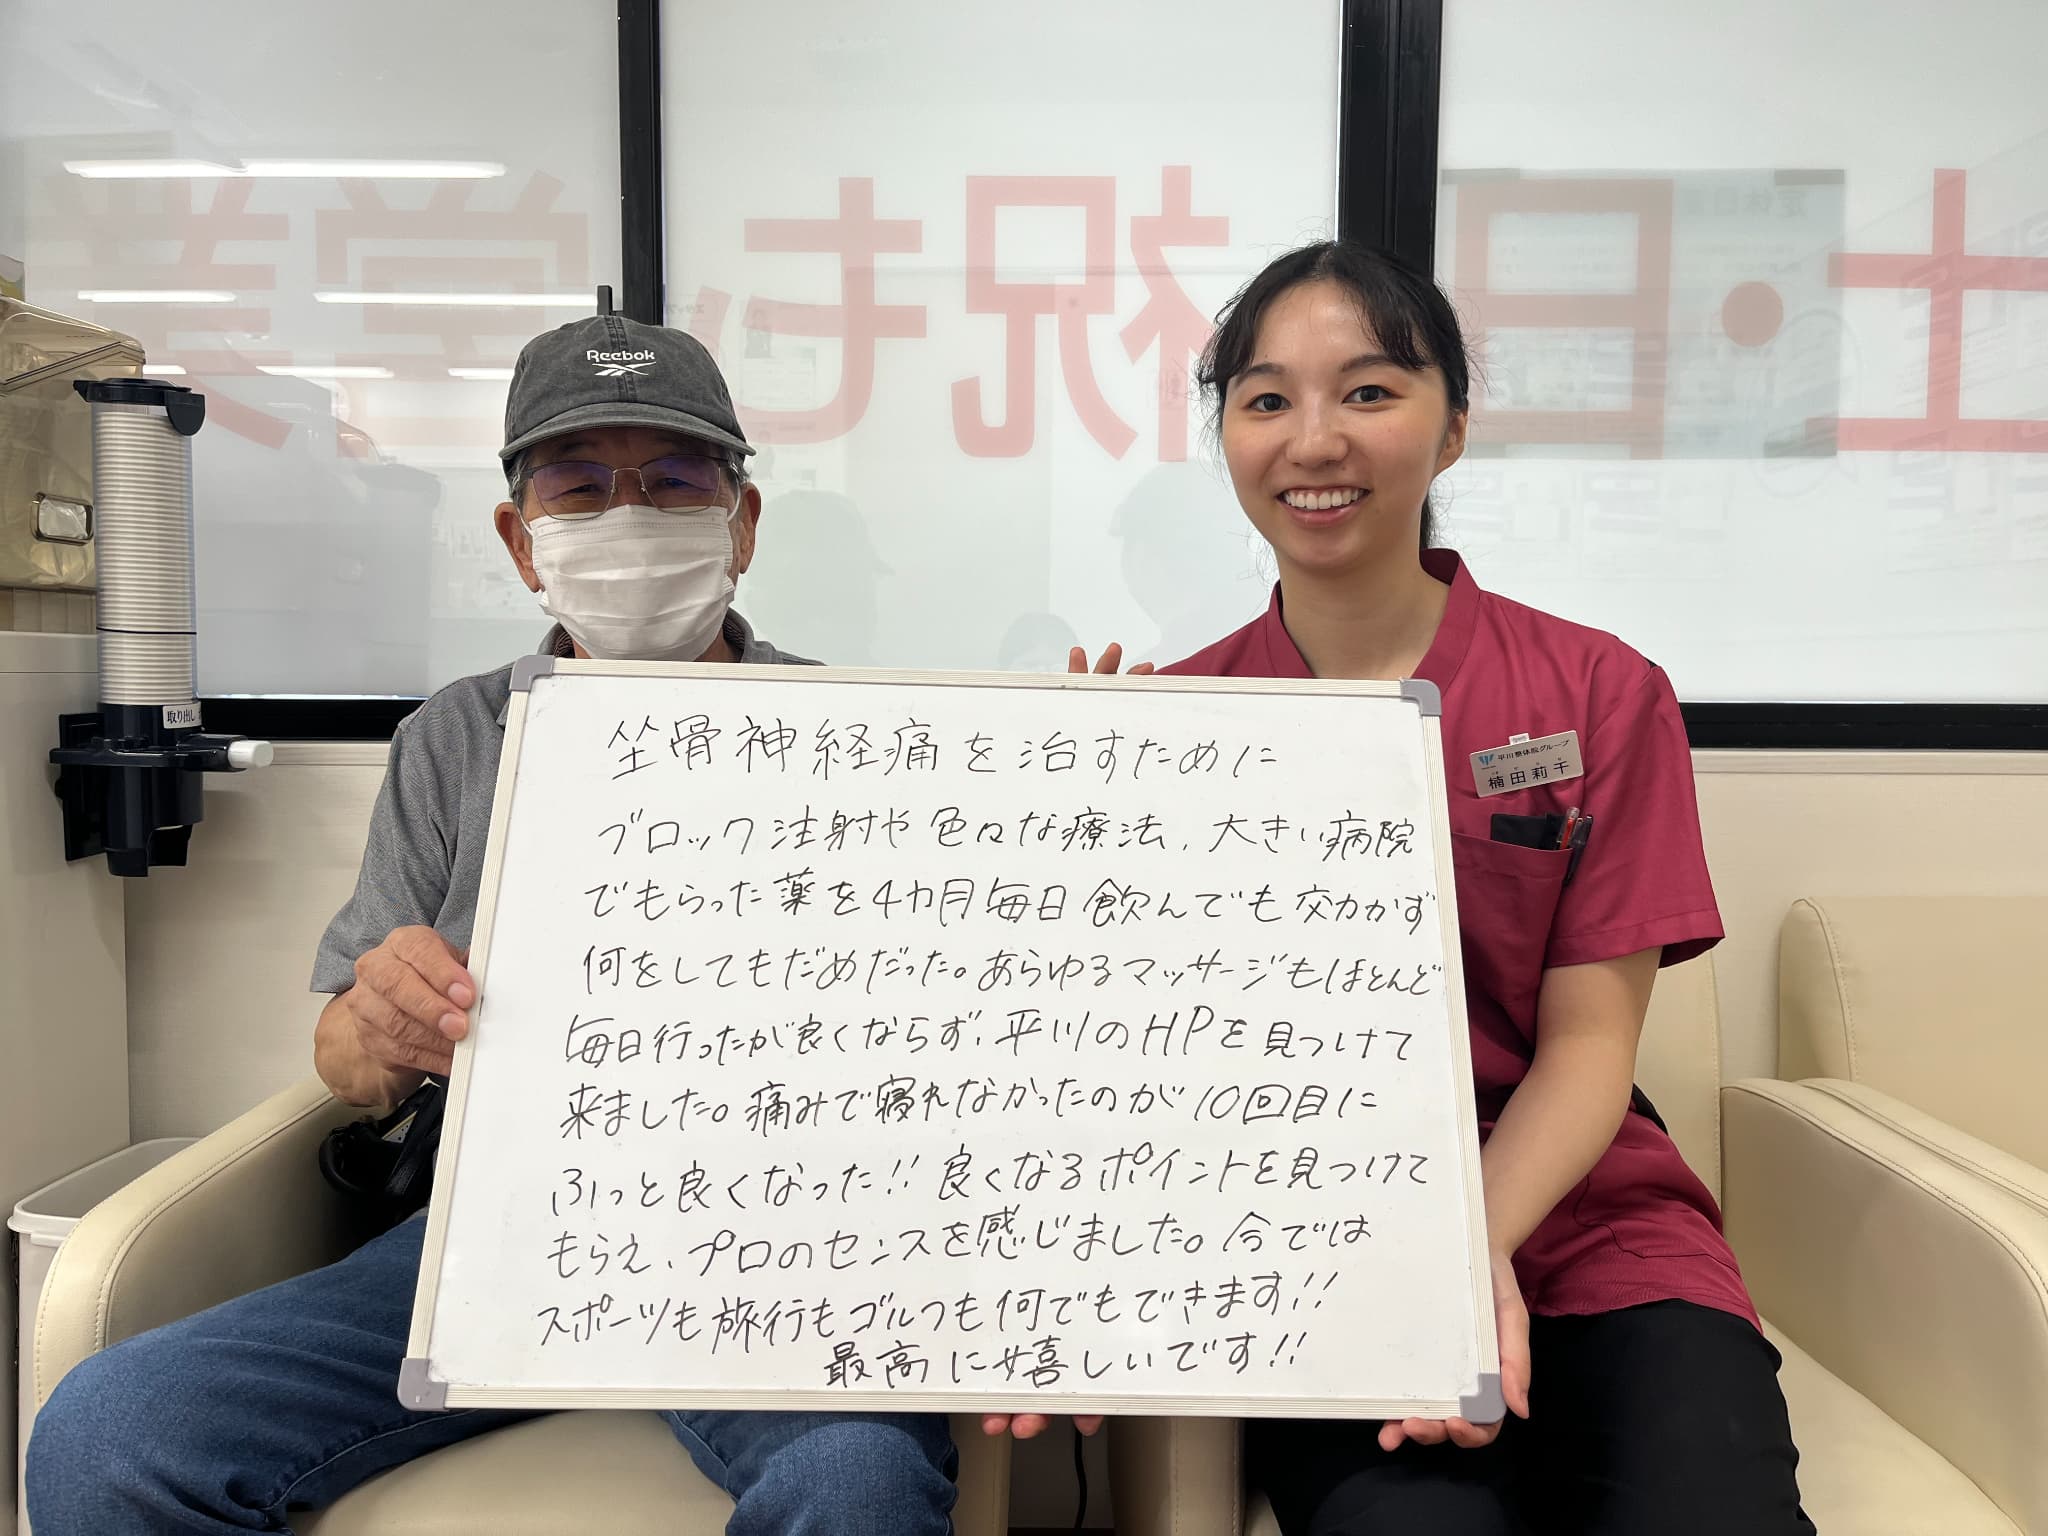 土・日・祝も営業
Reebok
取り出し
平川整体院グループ
楠田莉千
坐骨神経痛を治すために
ブロック注射や色々な療法、大きい病院
でもらった薬を4カ月毎日飲んでも交力かず
何をしてもだめだった。あらゆるマッサージもほとんど
毎日行ったが良くならず、平川のHPを見つけて
来ました。痛みで寝れなかったのが10回目に
ふっと良くなった!!良くなるポイントを見つけて
もらえ、プロのセンスを感じました。今では
スポーツも旅行もゴルフも何でもできます!!
最高に嬉しいです!!